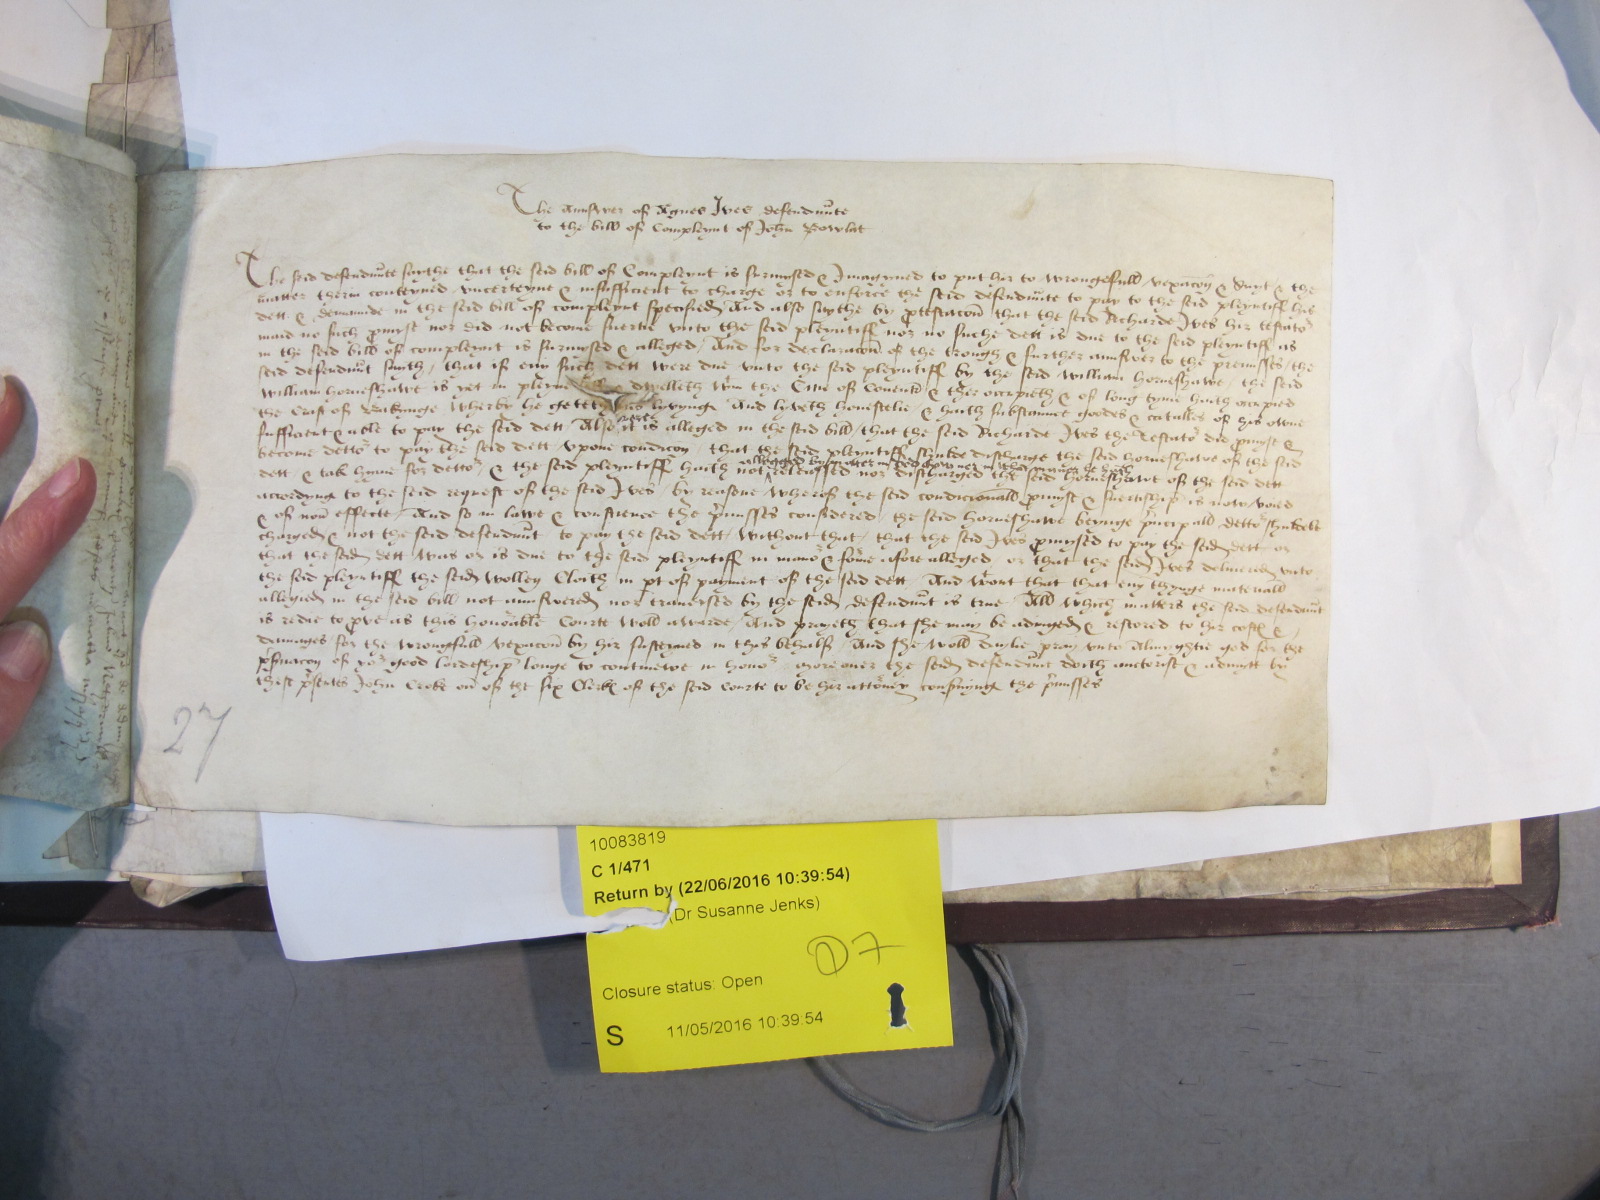 The Answer of Agnes Ives defendnte
to the bill of Compleynt of John Rowlat
The seid defendnte saythe that the seid bill of Compleynt is surmysed & Imagyned to put her to wrongefull vexacon & & the
matter therin conteyned uncerteyne & insufficient to charge or to enforce the seid defendnte to pay to the seid pleyntiff his
dett & demaunde in the seid bill of compleynt specified And also saythe by protestacon that the seid Richarde Ives hir testator
maid no such promyse nor did not become suertie unto the seid pleyntiff nor no suche dett is due to the seid pleyntiff as
in the seid bill of compleynt is surmysed & alleged / And for declaracon of the trough & further answer to the premisses / the
seid defendnt saith / that if eny such dett were due unto the seid pleyntiff by the seid William horneshawe / the seid
William horneshawe is yet in pleyn & dwelleth wtin the Citie of Coventre & ther occupieth & of long tyme haith occupied
the Craft of Bakynge Wherby he getteth his lyvynge And lyveth honestlie & haith substaunce goodes & catalles of his owne
sufficient & able to pay the seid dett Also where it is alleged in the seid bill / that the seid Richarde Ives the testator did promyse &
become dettor to pay the seid dett / upone condicon / that the seid pleyntiff shulde discharge the seid horneshawe of the seid
dett & tak hyme for dettor / & the seid pleyntiff haith not released nor discharged the seid horneshawe of the seid dett
alleged by matter in
accordyng to the seid request of the seid Ives / by reasone wherof the seid condicionall promyse & suertiship is now voied
& of non effecte / And so in lawe & consience the premisses considered / the seid horneshawe beynge principall dettor shulde be
charged & not the seid defendnt to pay the seid dett / Without that / that the seid Ives promysed to pay the seid dett or
that the seid dett was or is due to the seid pleyntiff in maner & forme afore alleged or that the seid Ives delivered unto
the seid pleyntiff the seid wolley Cloith in pt of payment of the seid dett / And wtout that that eny thynge materiall
allegied in the seid bill not answered nor traversed by the seid defendnt is true / All which matters the seid defendnt
is redie to prove as this honorable Courte woll awarde / And prayeth that she may be admyged & restored to hir costes &
damages for the wrongfull vexacon by hir susteyned in this behalf / And she woll daylie pray unto Almyghtie god for the
preservacon of yor good lordeship longe to continewe in honor / more over the seid defendnt doith auctorise & admytt by
these presentes John Croke on of the six Clerkes of the seid Courte to be hir attorney consernyng the premisses
27
10083819
C 1/471
Return by (22/06/2016 10:39:54)
(Dr Susanne Jenks)
D7
Closure status: Open
S 11/05/2016 10:39:54